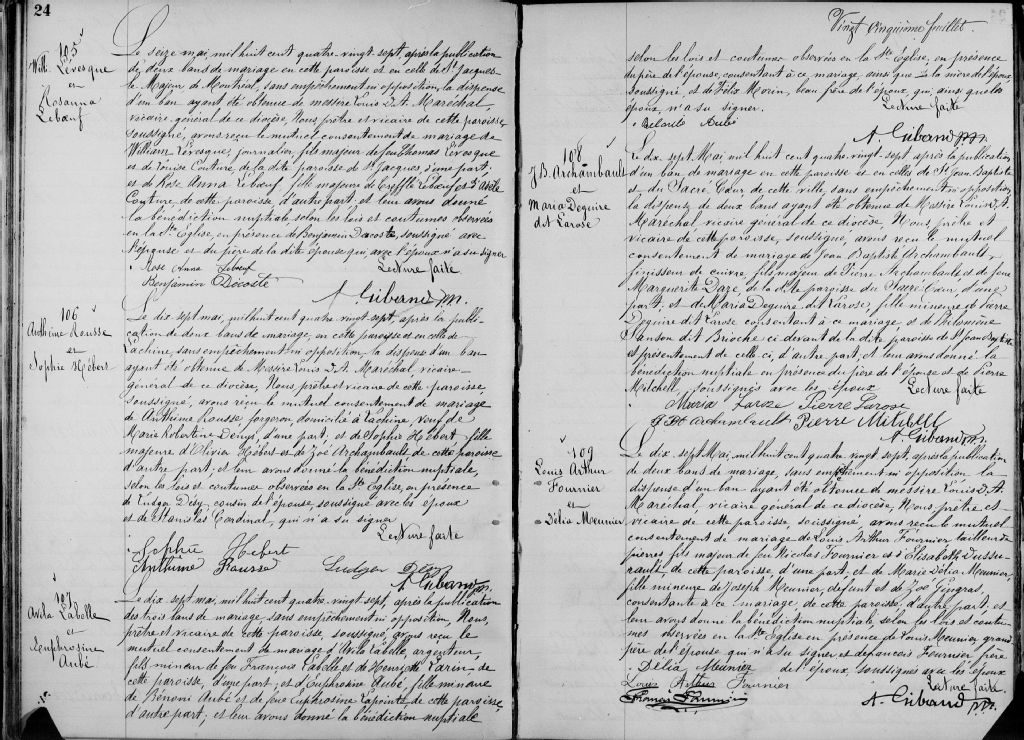 24
105
Will. Lévesque
et
Rosanna
Lebœuf
Le seize mai, mil huit cent quatre-vingt-sept, après la publication
de deux bans de mariage en cette paroisse et en celle de St Jacques-
le Majeur de Montréal, sans empêchement ni opposition la dispense
d'un ban ayant été obtenue de messire Louis D. A. Maréchal,
vicaire général de ce diocèse, Nous prêtre et vicaire de cette paroisse,
soussigné, avons reçu le mutuel consentement de mariage de
William Lévesque, journalier, fils majeur de feu Thomas Lévesque
et de Louise Couture, de la dite paroisse de St Jacques, d'une part;
et de Rose Anna Lebœuf, fille majeure de Treffle Lebœuf et d'Adèle
Couture, de cette paroisse, d'autre part, et leur avons donné
la bénédiction nuptiale selon les lois et coutumes observées
en la Ste Eglise, en présence de Benjamin Dacoste, soussigné avec
l'épouse et du père de la dite épouse qui avec l'époux n'a su signer
Lecture faite
Rose Anna Lebœuf
Benjamin Décoste
A Ciband ptr.
106
Anthime Rousse
et
Sophie Hébert
Le dix sept mai, mil huit cent quatre-vingt-sept, après la publi-
cation de deux bans de mariage, en cette paroisse et en celle de
Lachine, sans empêchement ni opposition, la dispense d'un ban
ayant été obtenue de Messire Louis D. A. Maréchal, vicaire-
général de ce diocèse, Nous prêtre et vicaire de cette paroisse
soussigné, avons reçu le mutuel consentement de mariage
de Anthime Rousse, forgeron, domicilié à Lachine veuf de
Marie Robertine Denys, d'une part, et de Sophie Hébert, fille
majeure d'Olivier Hébert et de Zoé Archambault de cette paroisse
d'autre part, et leur avons donné la bénédiction nuptiale,
selon les lois et coutumes observées en la Ste Eglise, en présence
de Ludger Désy, cousin de l'épouse, soussigné avec les époux
et de Stanislas Cardinal, qui n'a su signer
Lecture faite
Sophie Hebert
Anthime Rousse Ludger Desy
A Ciband ptr.
107
Avila Labelle
et
Euphrosine
Aubé
Le dix sept mai, mil huit cent quatre-vingt-sept, après la publication
des trois bans de mariage, sans empêchement ni opposition, Nous,
prêtre et vicaire de cette paroisse, soussigné, avons reçu le
mutuel consentement de mariage d'Avila Labelle, argenteur,
fils mineur de feu François Labelle et de Henriette Larin, de
cette paroisse, d'une part; et d'Euphrosine Aubé, fille mineure
de Bénoni Aubé et de feue Euphrosine Lapointe, de cette paroisse,
d'autre part; et leur avons donné la bénédiction nuptiale
Vingt cinquième feuillet.
selon les lois et coutumes observées en la Ste Eglise, en présence
du père de l'épouse, consentant à ce mariage, ainsi que de la mère de l'époux,
soussigné, et de Félix Morin, beau père de l'époux, qui, ainsi que les
époux, n'a su signer.
Lecture faite
Aubé
A. Ciband ptr.
108
J B. Archambault
et
Maria Deguire
dit Larose
Le dix sept Mai, mil huit cent quatre-vingt-sept, après la publication
d'un ban de mariage en cette paroisse et en celles de St Jean Baptiste
et du Sacré Cœur de cette ville, sans empêchement ni opposition,
la dispense de deux bans ayant été obtenue de Messire Louis D. A.
Maréchal, vicaire général de ce diocèse, Nous, prêtre et
vicaire de cette paroisse, soussigné, avons reçu le mutuel
consentement de mariage de Jean Baptiste Archambault,
finisseur de cuivre, fils majeur de Pierre Archambault et de feue
Marguerite Daze, de la dite paroisse du Sacré Cœur d'une
part; et de Maria Deguire dit Larose, fille mineure de Pierre
Deguire dit Larose consentant à ce mariage, et de Philomène
Sandon dit Brioche ci devant de la dite paroisse de St Jean Baptiste
et présentement de celle-ci, d'autre part, et leur avons donné la
bénédiction nuptiale en présence du père de l'épouse et de Pierre
Mitchell, soussignés avec les époux
Lecture faite
Maria Laroze Pierre Larose
J. Bte Archambault Pierre Mitchell
A Cibandptr.
109
Louis Arthur
Fournier
et
Délia Meunier
Le dix sept Mai, mil huit cent quatre vingt sept, après la publication
de deux bans de mariage, sans empêchement ni opposition la
dispense d'un ban ayant été obtenue de messire Louis D. A.
Maréchal, vicaire général de ce diocèse, Nous, prêtre et
vicaire de cette paroisse, soussigné, avons reçu le mutuel
consentement de mariage de Louis Arthur Fournier tailleur de
pierres, fils majeur de feu Nicolas Fournier et d'Elisabeth Dussu-
rault de cette paroisse, d'une part, et de Marie Délia Meunier,
fille mineure de Joseph Meunier, défunt et de Zoé Gingras,
consentante à ce mariage, de cette paroisse, d'autre part, et
leur avons donné la bénédiction nuptiale, selon les lois et coutu-
mes observées en la Ste Eglise en présence de Louis Meunier, grand
père de l'épouse qui n'a su signer et de François Fournier frère
de l'époux, soussignés avec les époux
Délia Meunier
Lecture faite
Louis Arthur Fournier
François Fournier
A. Ciband ptr.